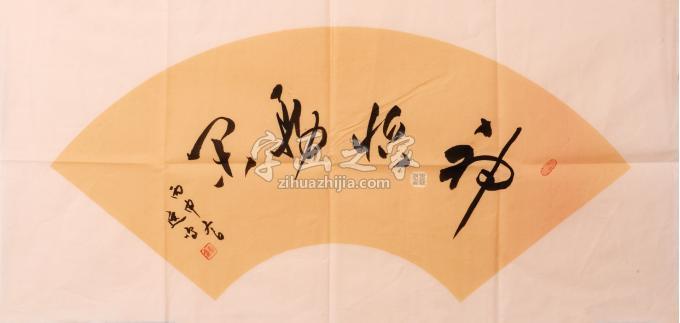 神怡務閑
丙申
字画之家
zihuazhijia.com